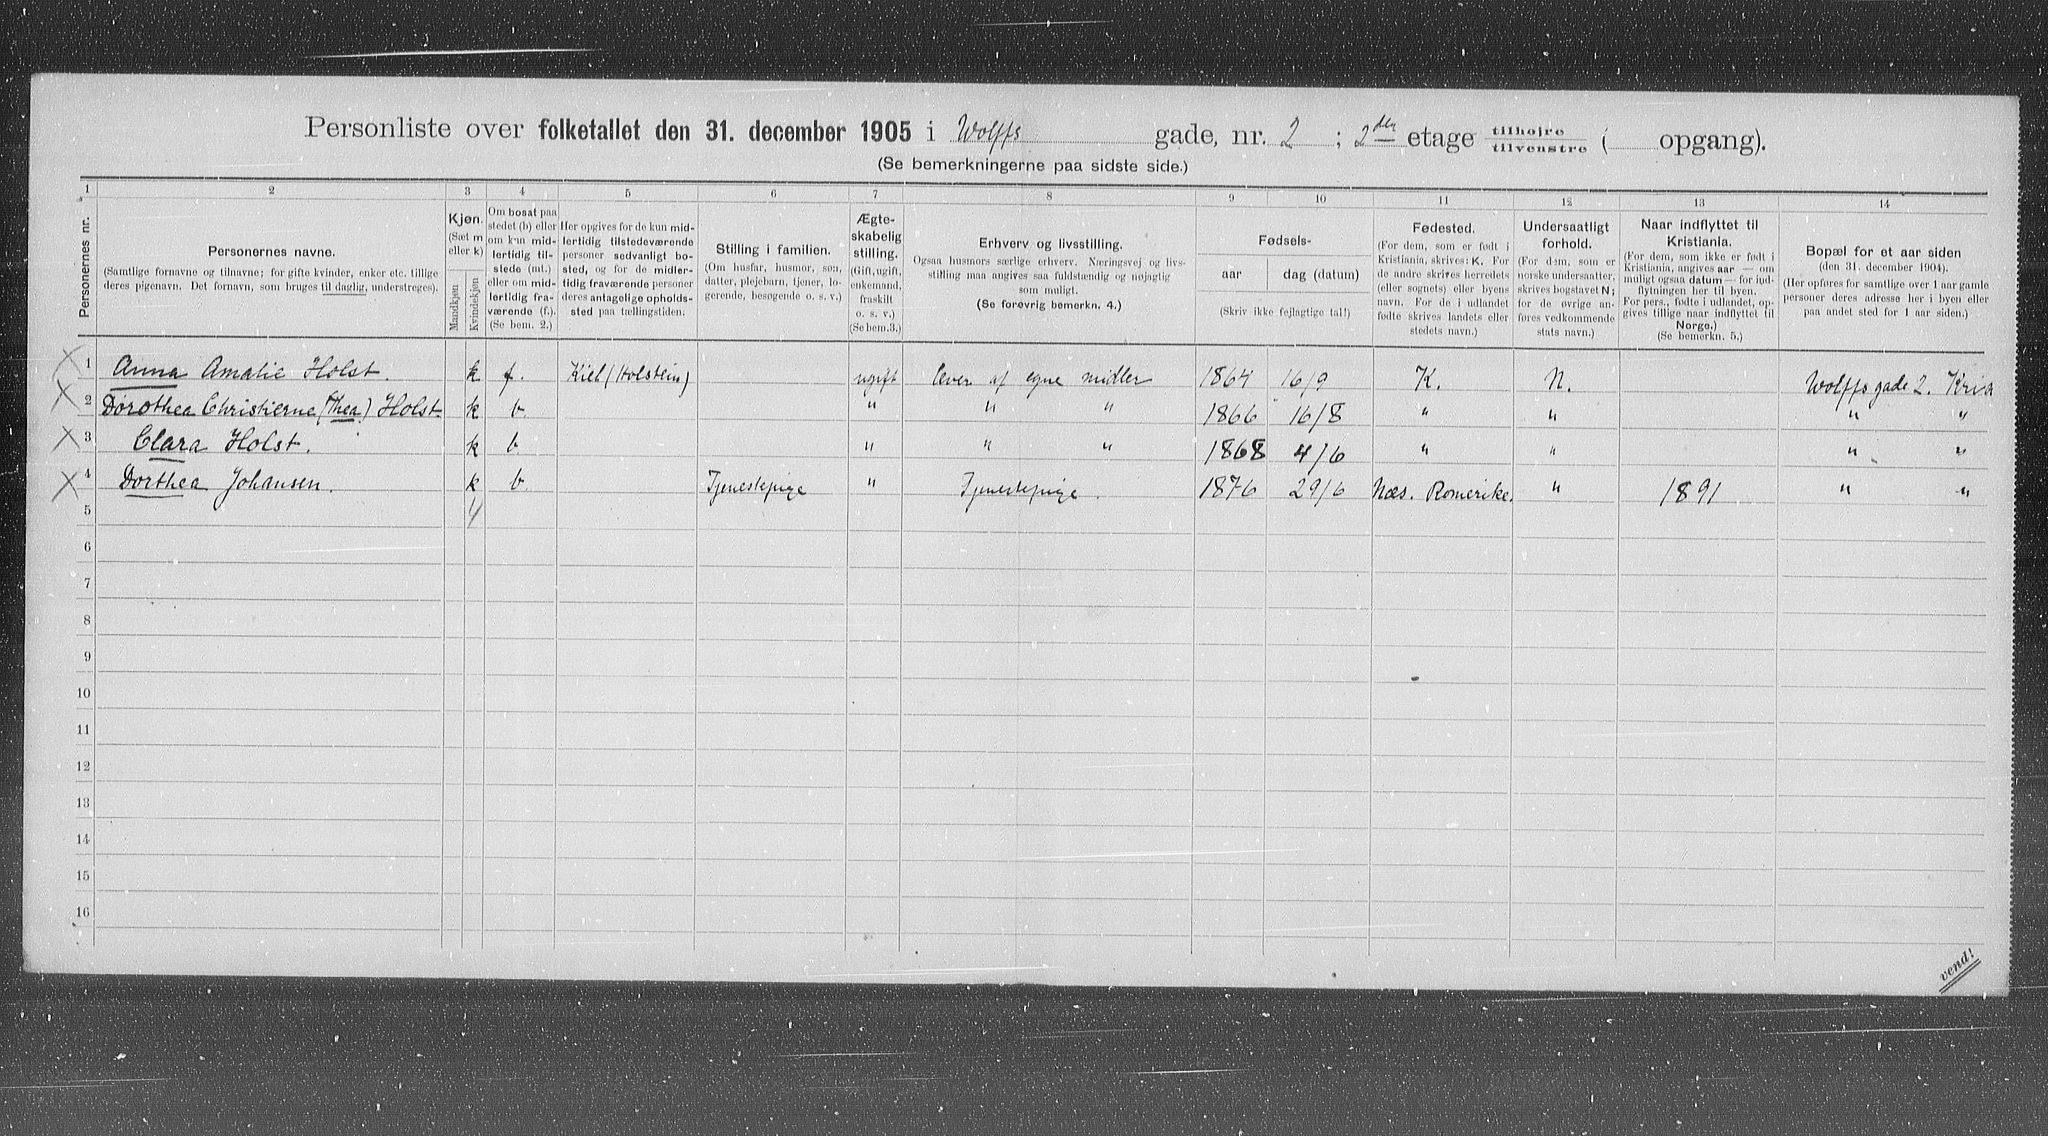 Personliste over folketallet den 31. december 1905 i Wolffs gade, nr. 2 ; 2den etage tilhøjre tilvenstre ( opgang).
(Se bemerkningerne paa sidste side.)
1 2 3 4 5 6 7 8 9 10 11 12 13 14
Personernes nr.
Personernes navne.
(Samtlige fornavne og tilnavne; for gifte kvinder, enker etc. tillige
deres pigenavn. Det fornavn, som bruges til daglig, understreges).
Kjøn.
(Sæt m
eller k)
Mandkjøn
Kvindekjøn
Om bosat paa
stedet (b) eller
om kun mid-
lertidig til-
stede (mt.)
eller om mid-
lertidig fra-
værende (f.).
(Se bem. 2.)
Her opgives for de kun mid-
lertidig tilstedeværende
personer sedvanligt bo-
sted, og for de midler-
tidig fraværende personer
deres antagelige opholds-
sted paa tællingstiden.
Stilling i familien.
(Om husfar, husmor, søn,
datter, plejebarn, tjener, lo-
gerende, besøgende o. s. v.)
Ægte-
skabelig
stilling.
(Gift, ugift,
enkemand,
fraskilt
o. s. v.)
(Se bem.3.)
Erhverv og livsstilling.
Ogsaa husmors særlige erhverv. Næringsvej og livs-
stilling maa angives saa fuldstændig og nøjagtig
som muligt.
(Se forøvrig bemerkn. 4.)
Fødsels-
aar dag (datum)
(Skriv ikke fejlagtige tal!)
Fødested.
(For dem, som er født i
Kristiania, skrives: K. For
de andre skrives herredets
(eller sognets) eller byens
navn. For de i udlandet
fødte skrives landets eller
stedets navn.)
Undersaatligt
forhold.
(For dem, som er
norske undersaatter,
skrives bogstavet N;
for de øvrige an-
føres vedkommende
stats navn.)
Naar indflyttet til
Kristiania.
(For dem, som ikke er født i
Kristiania, angives aar — om
muligt ogsaa datum — for ind-
flytningen her til byen.
For pers., fødte i udlandet, op-
gives tillige naar indflyttet til
Norge.)
(Se bemerkn. 5.)
Bopæl for et aar siden
(den 31. december 1904).
(Her opføres for samtlige over 1 aar gamle
personer deres adresse her i byen eller
paa andet sted for 1 aar siden.)
1 Anna Amalie Holst. k f. Kiel (Holstein) ugift lever af egne midler 1864 16/9 K. N. Wolffsgade 2. Kria
2 Dorothea Christierne (Thea) Holst. k b. " " " 1866 16/8 " " " "
3 Clara Holst. k b. " " " 1868 4/6 " " " "
4 Dorthea Johansen. k b. Tjenestepige " Tjenestepige. 1876 29/6 Næs. Romerike. " 1891 " "
5 4
6
7
8
9
10
11
12
13
14
15
16
vend!